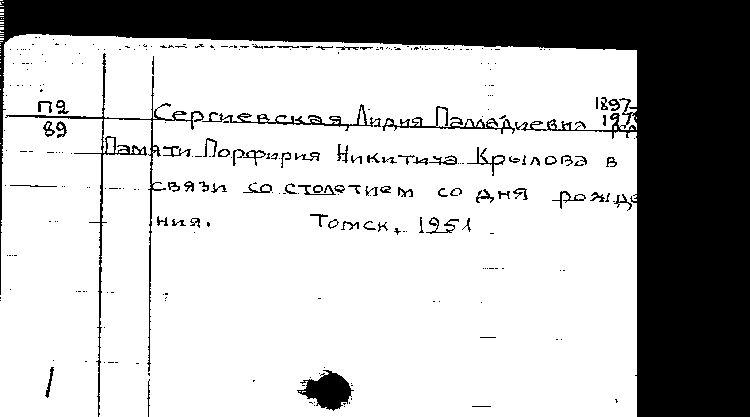 П2
89
1897-
Сергиевская, Лидия Палладиевна
Памяти Порфирия Никитича Крылова в
связи со столетием со дня рожде
ния. Томск, 1951